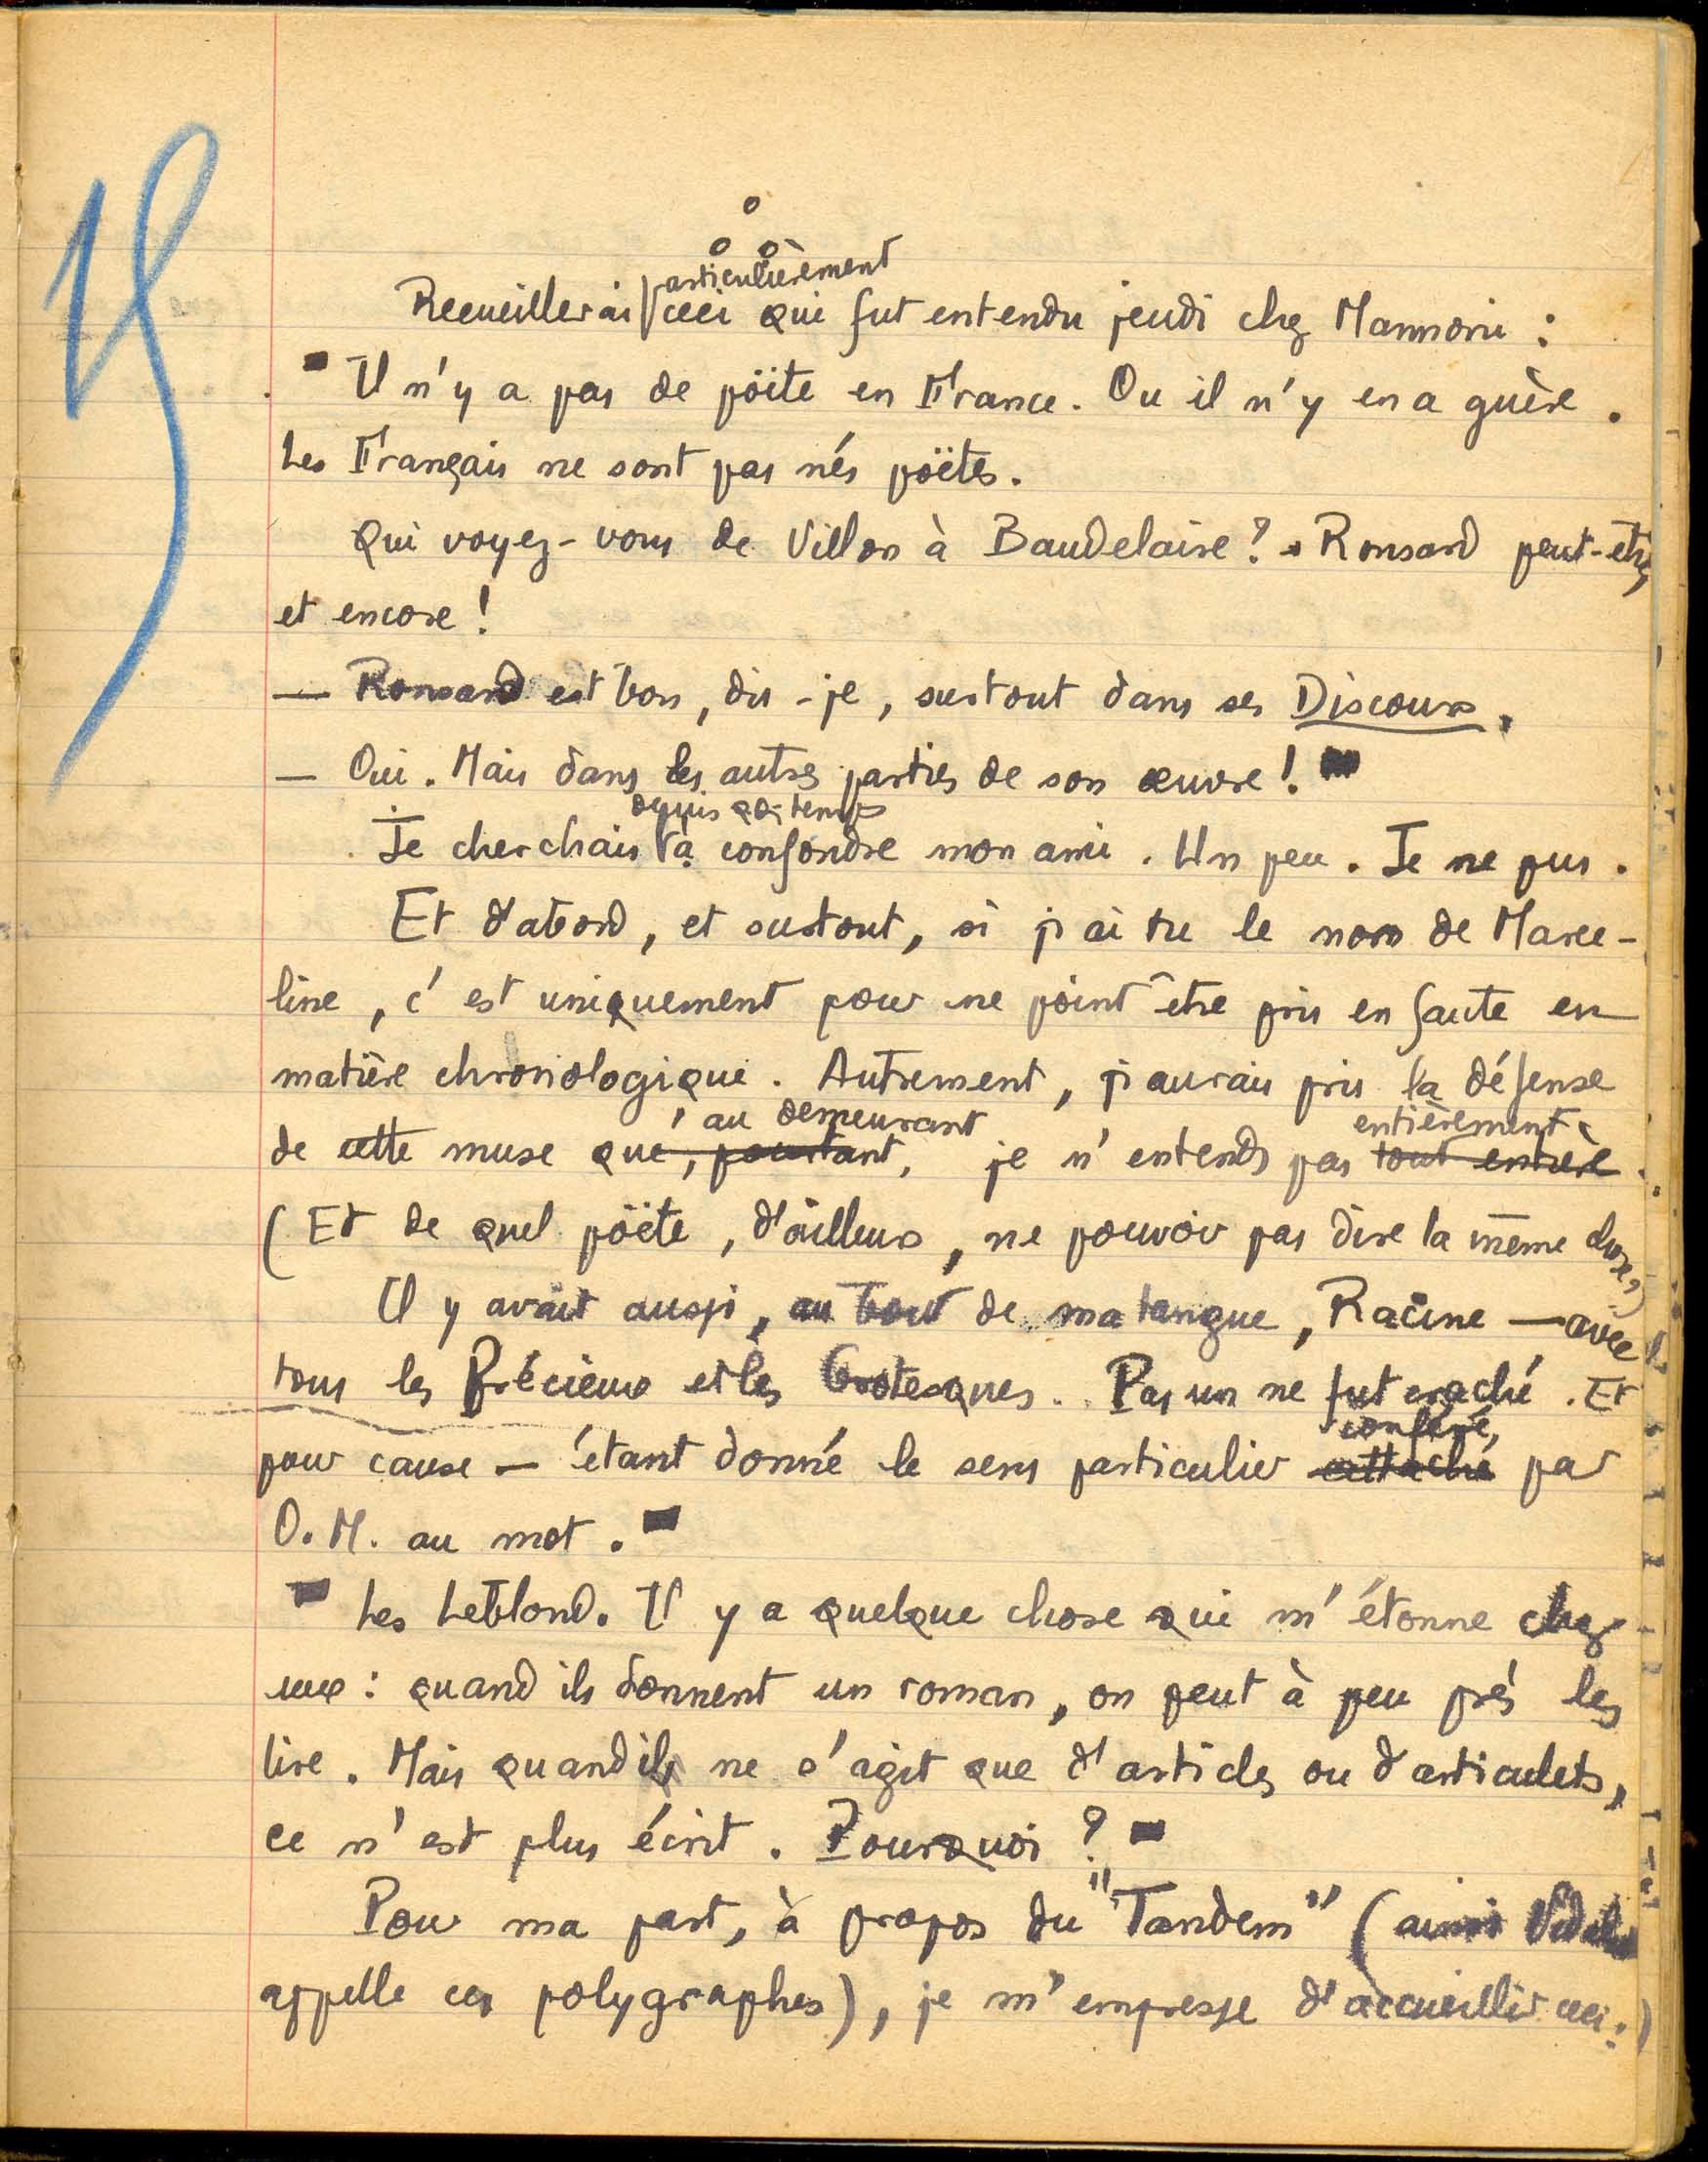 particulièrement
Recueillerai ceci qui fut entendu jeudi chez Mannoni :
Il n'y a pas de poëte en France. Ou il n'y en a guère.
Les Français ne sont pas nés poëtes.
Qui voyez-vous de Villon à Baudelaire ? Ronsard peut-être,
et encore !
— Ronsard est bon, dis-je, surtout dans ses Discours.
— Oui. Mais dans les autres parties de son œuvre !
depuis qq. temps
Je cherchais à confondre mon ami. Un peu. Je ne pus.
Et d'abord, et surtout, si j'ai tu le nom de Marce-
line, c'est uniquement pour ne point être pris en faute en
matière chronologique. Autrement, j'aurais pris la défense
au demeurant entièrement
de cette muse que, pourtant, je n'entends pas tout entière.
(Et de quel poëte, d'ailleurs, ne pouvoir pas dire la même chose ?)
Il y avait aussi, au bout de ma langue, Racine — avec
tous les Précieux et les Grotesques. Pas un ne fut craché. Et
conféré
pour cause — étant donné le sens particulier attaché par
O. M. au mot.
Les Leblond. Il y a quelque chose qui m'étonne chez
eux : quand ils donnent un roman, on peut à peu près les
lire. Mais quand il ne s'agit que d'articles ou d'articulets,
ce n'est plus écrit. Pourquoi ?
Pour ma part, à propos du "Tandem" (ainsi
appelle ces polygraphes), je m'empresse d'accueillir ceci :